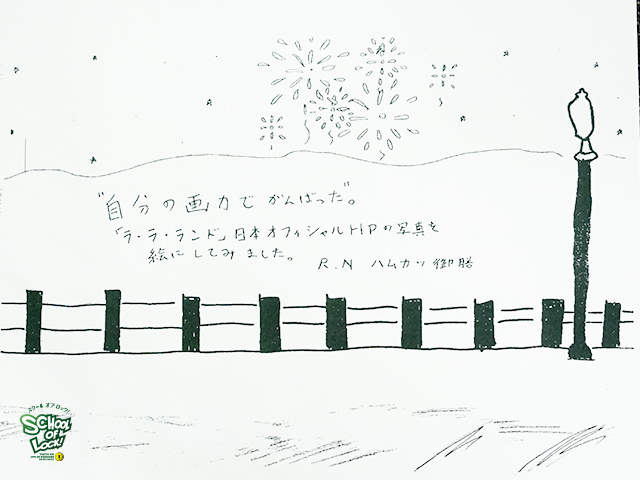 "自分の画力でがんばった"。
「ラ・ラ・ランド」日本オフィシャルHPの写真を
絵にしてみました。
R.N ハムカツ御膳
スクール オブ ロック!
SCHOOL
OF
LOCK!